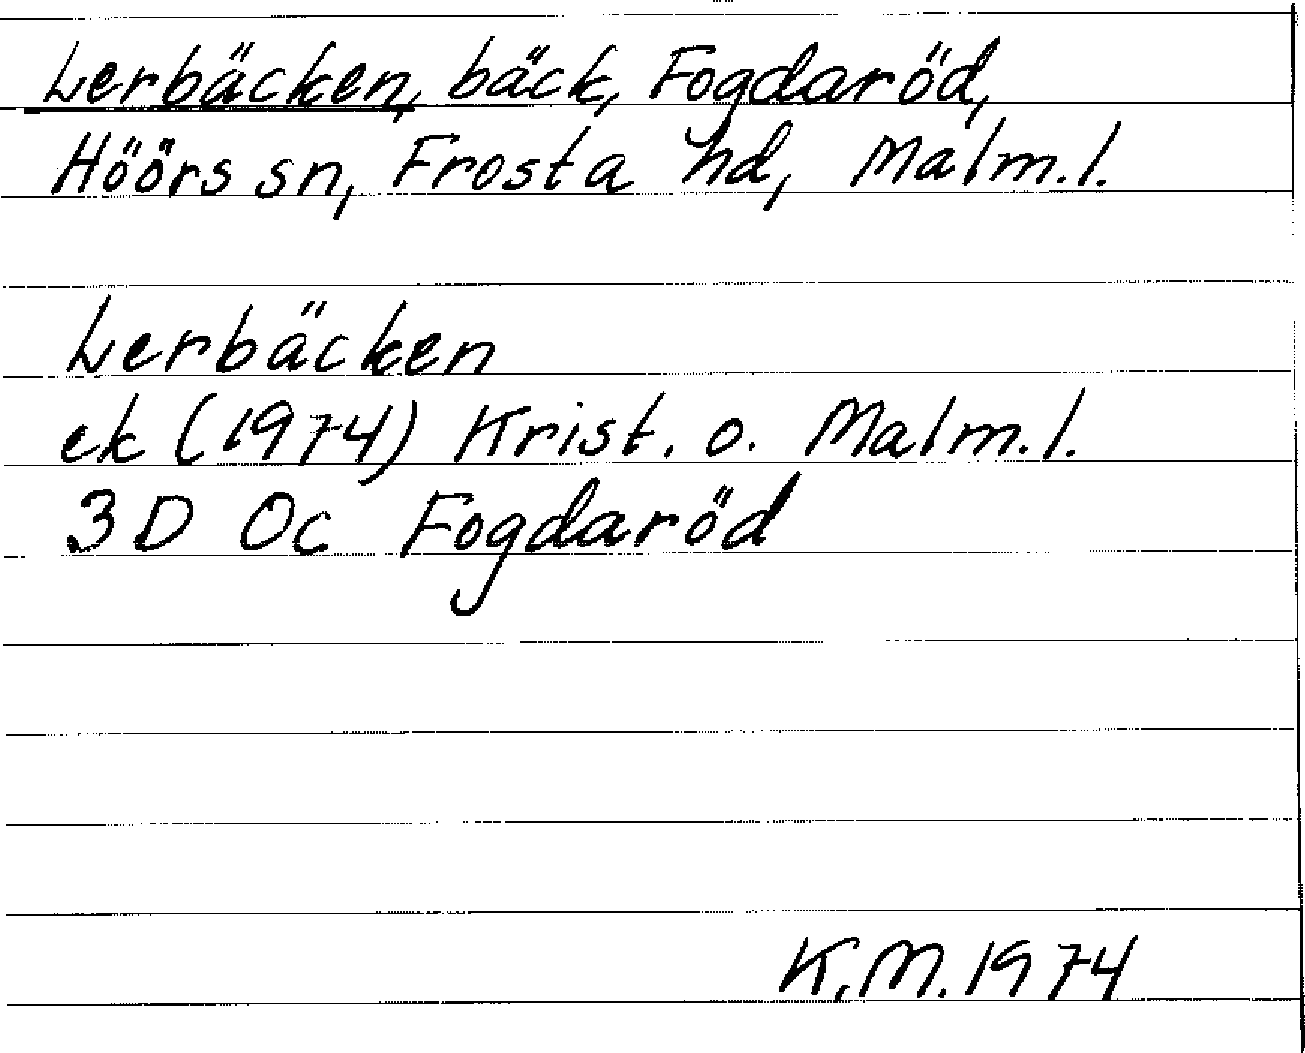 Lerbäcken, bäck, Fogdaröd,
Höörs sn, Frosta hd, Malm.l.
Lerbäcken
ek (1974) Krist. o. Malm.l.
3D Oc Fogdaröd
K.M. 1974